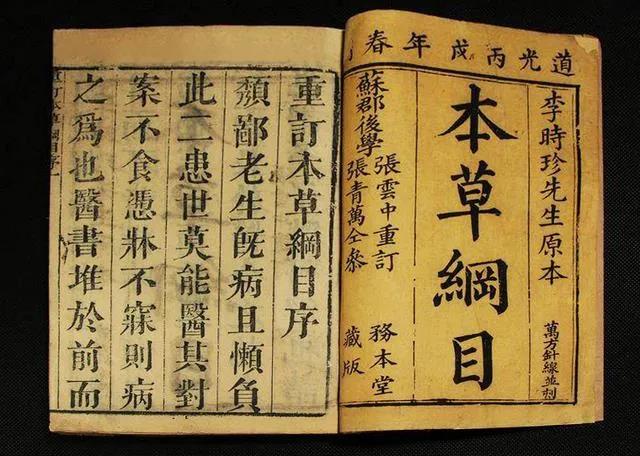 道光丙戌年春
李時珍先生原本
萬方針線並刻
本草綱目
蘇郡後學
張雲中重訂
張青萬仝參
務本堂
藏版
重訂本草綱目序
頽鄙老生旣病且懶負
此二患世莫能醫其對
案不食憑牀不寐則病
之爲也醫書堆於前而
重訂本草綱目序